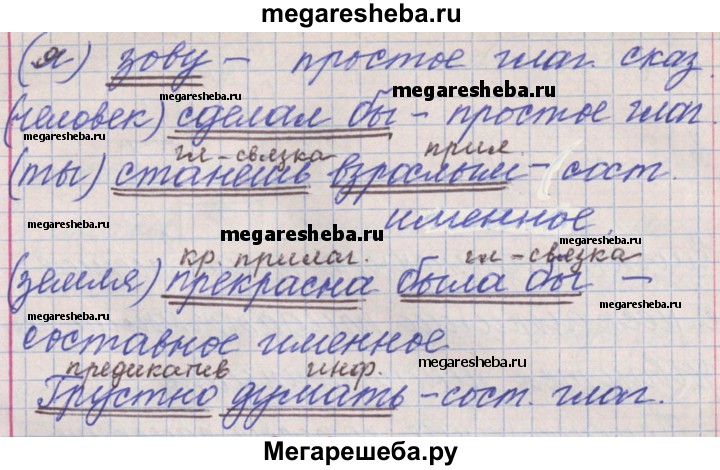 megaresheba.ru
(я) зову – простое глаг. сказ.
megaresheba.ru
megaresheba.ru
megaresheba.ru
(человек) сделал бы – простое глаг.
гл-связка прил.
(ты) станешь взрослым – сост.
megaresheba.ru
megaresheba.ru
именное.
megaresheba.ru
кр. прилаг. гл-связка
(земля) прекрасна была бы –
megaresheba.ru
megaresheba.ru
составное именное
megaresheba.ru
предикатив инф.
Грустно думать – сост. глаг.
Мегарешеба.ру